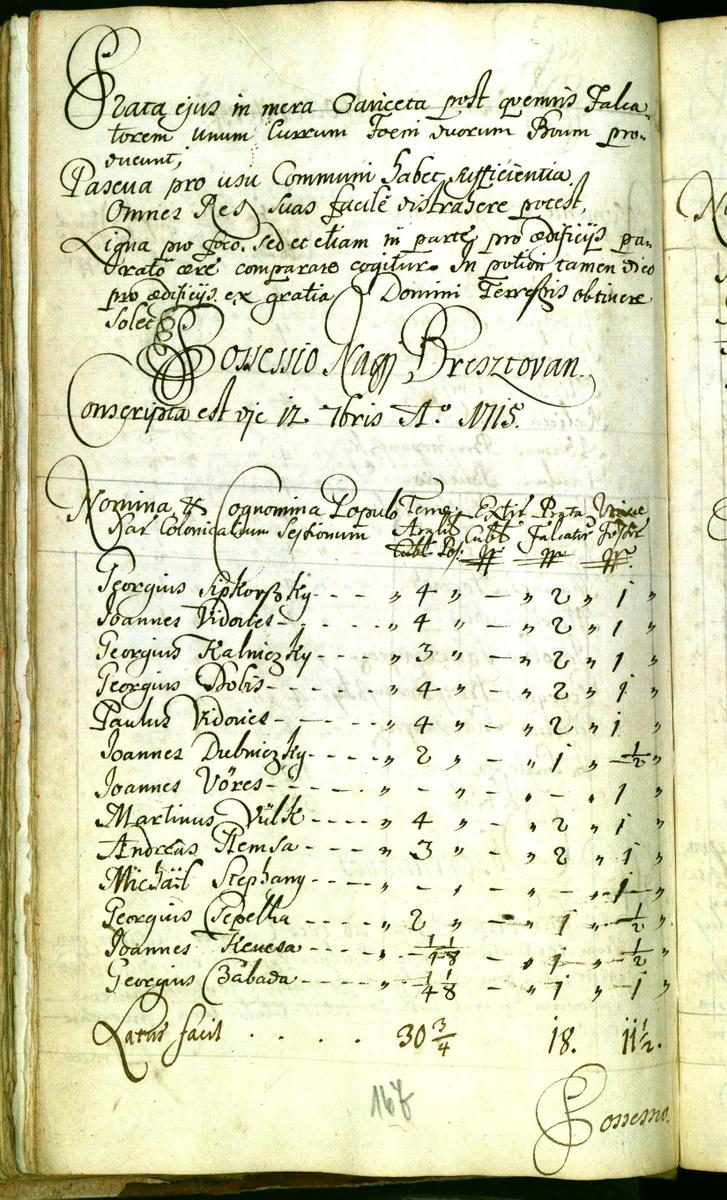 Prata ejus in mera Cariceta post quemvis Falca-
torem unum Currum Foeni duorum Boum pro-
ducunt;
Pascua pro usu Communi habet sufficientia.
Omnes Res suas facile distrahere potest,
Ligna pro foco, sed et etiam in parte pro ædificijs pa-
rato ære comparare cogitur. In potiori tamen
pro ædificijs ex gratia Domini Terrestris obtinere
solet
Possessio Nagy Bresztovan.
Conscripta est die 12 7bris Aō 1715.
Nomina & Cognomina Populo Terræ Extir Prata Vineæ
Nar Colonicalium Sessionum Arabil Cubl Falcator Fossor
Cubl Pos.
Georgius Sipkorszky - - - „ 4 „ — „ 2 „ 1 „
Joannes Vidovics - - - „ 4 „ — „ 2 „ 1 „
Georgius Kalniczky - - - „ 3 „ — „ 2 „ 1 „
Georgius Dobis - - - - „ 4 „ — „ 2 „ 1 „
Paulus Vidovics - - - - „ 4 „ — „ 2 „ 1 „
Joannes Dubniczky - - - „ 2 „ — „ 1 „ ½ „
Joannes Vöres - - - - „ - „ — „ - „ 1 „
Martinus Vülk - - - - „ 4 „ — „ 2 „ 1 „
Andreas Klemsa - - - - „ 3 „ — „ 2 „ 1 „
Michäil Stephany - - - „ - „ — „ - „ 1 „
Georgius Csepelka - - - - „ 2 „ - „ 1 „ ½ „
Joannes Kevesa - - - - „ ¼ ⅛ - „ 1 „ ½ „
Georgius Czabada - - - - „ ¼ ⅛ - „ 1 „ 1 „
Latus facit . . . . 30 ¾ 18. 11 ½.
167
Possessio.